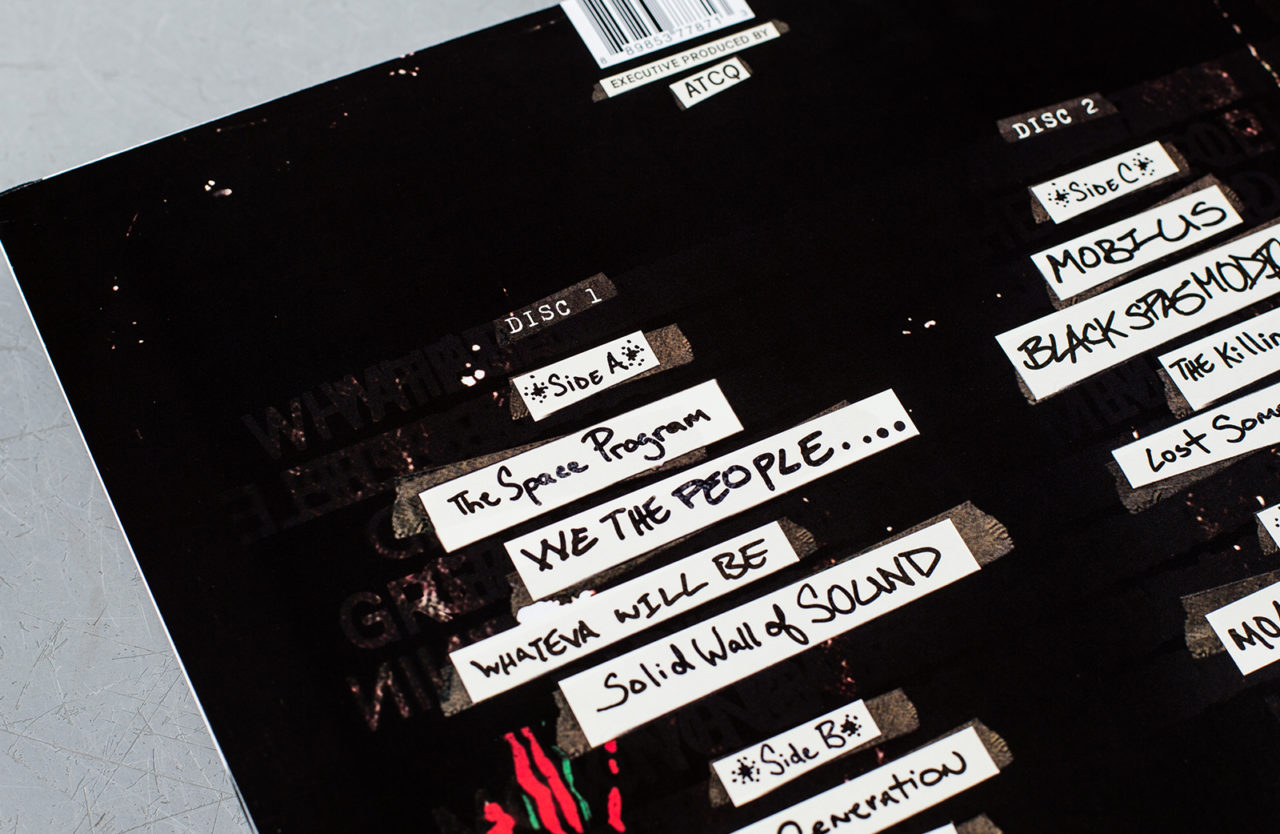 8 89853 77871 3
EXECUTIVE PRODUCED BY
ATCQ
DISC 1
*Side A*
The Space Program
WE THE PEOPLE.....
WHATEVA WILL BE
Solid Wall of SOUND
*Side B*
Generation
DISC 2
*Side C*
MOBIUS
BLACK SPASMODIC
THE Killin
Lost Som